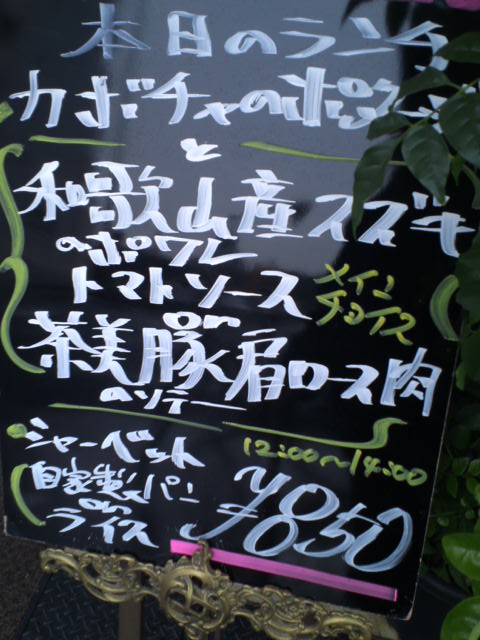 本日のランチ
カボチャのポタージュ
と
和歌山産スズキ
のポワレ
トマトソース
メイン
チョイス
or
茶美豚肩ロース肉
のソテー
シャーベット
12:00~14:00
自家製パン
or
ライス
¥850